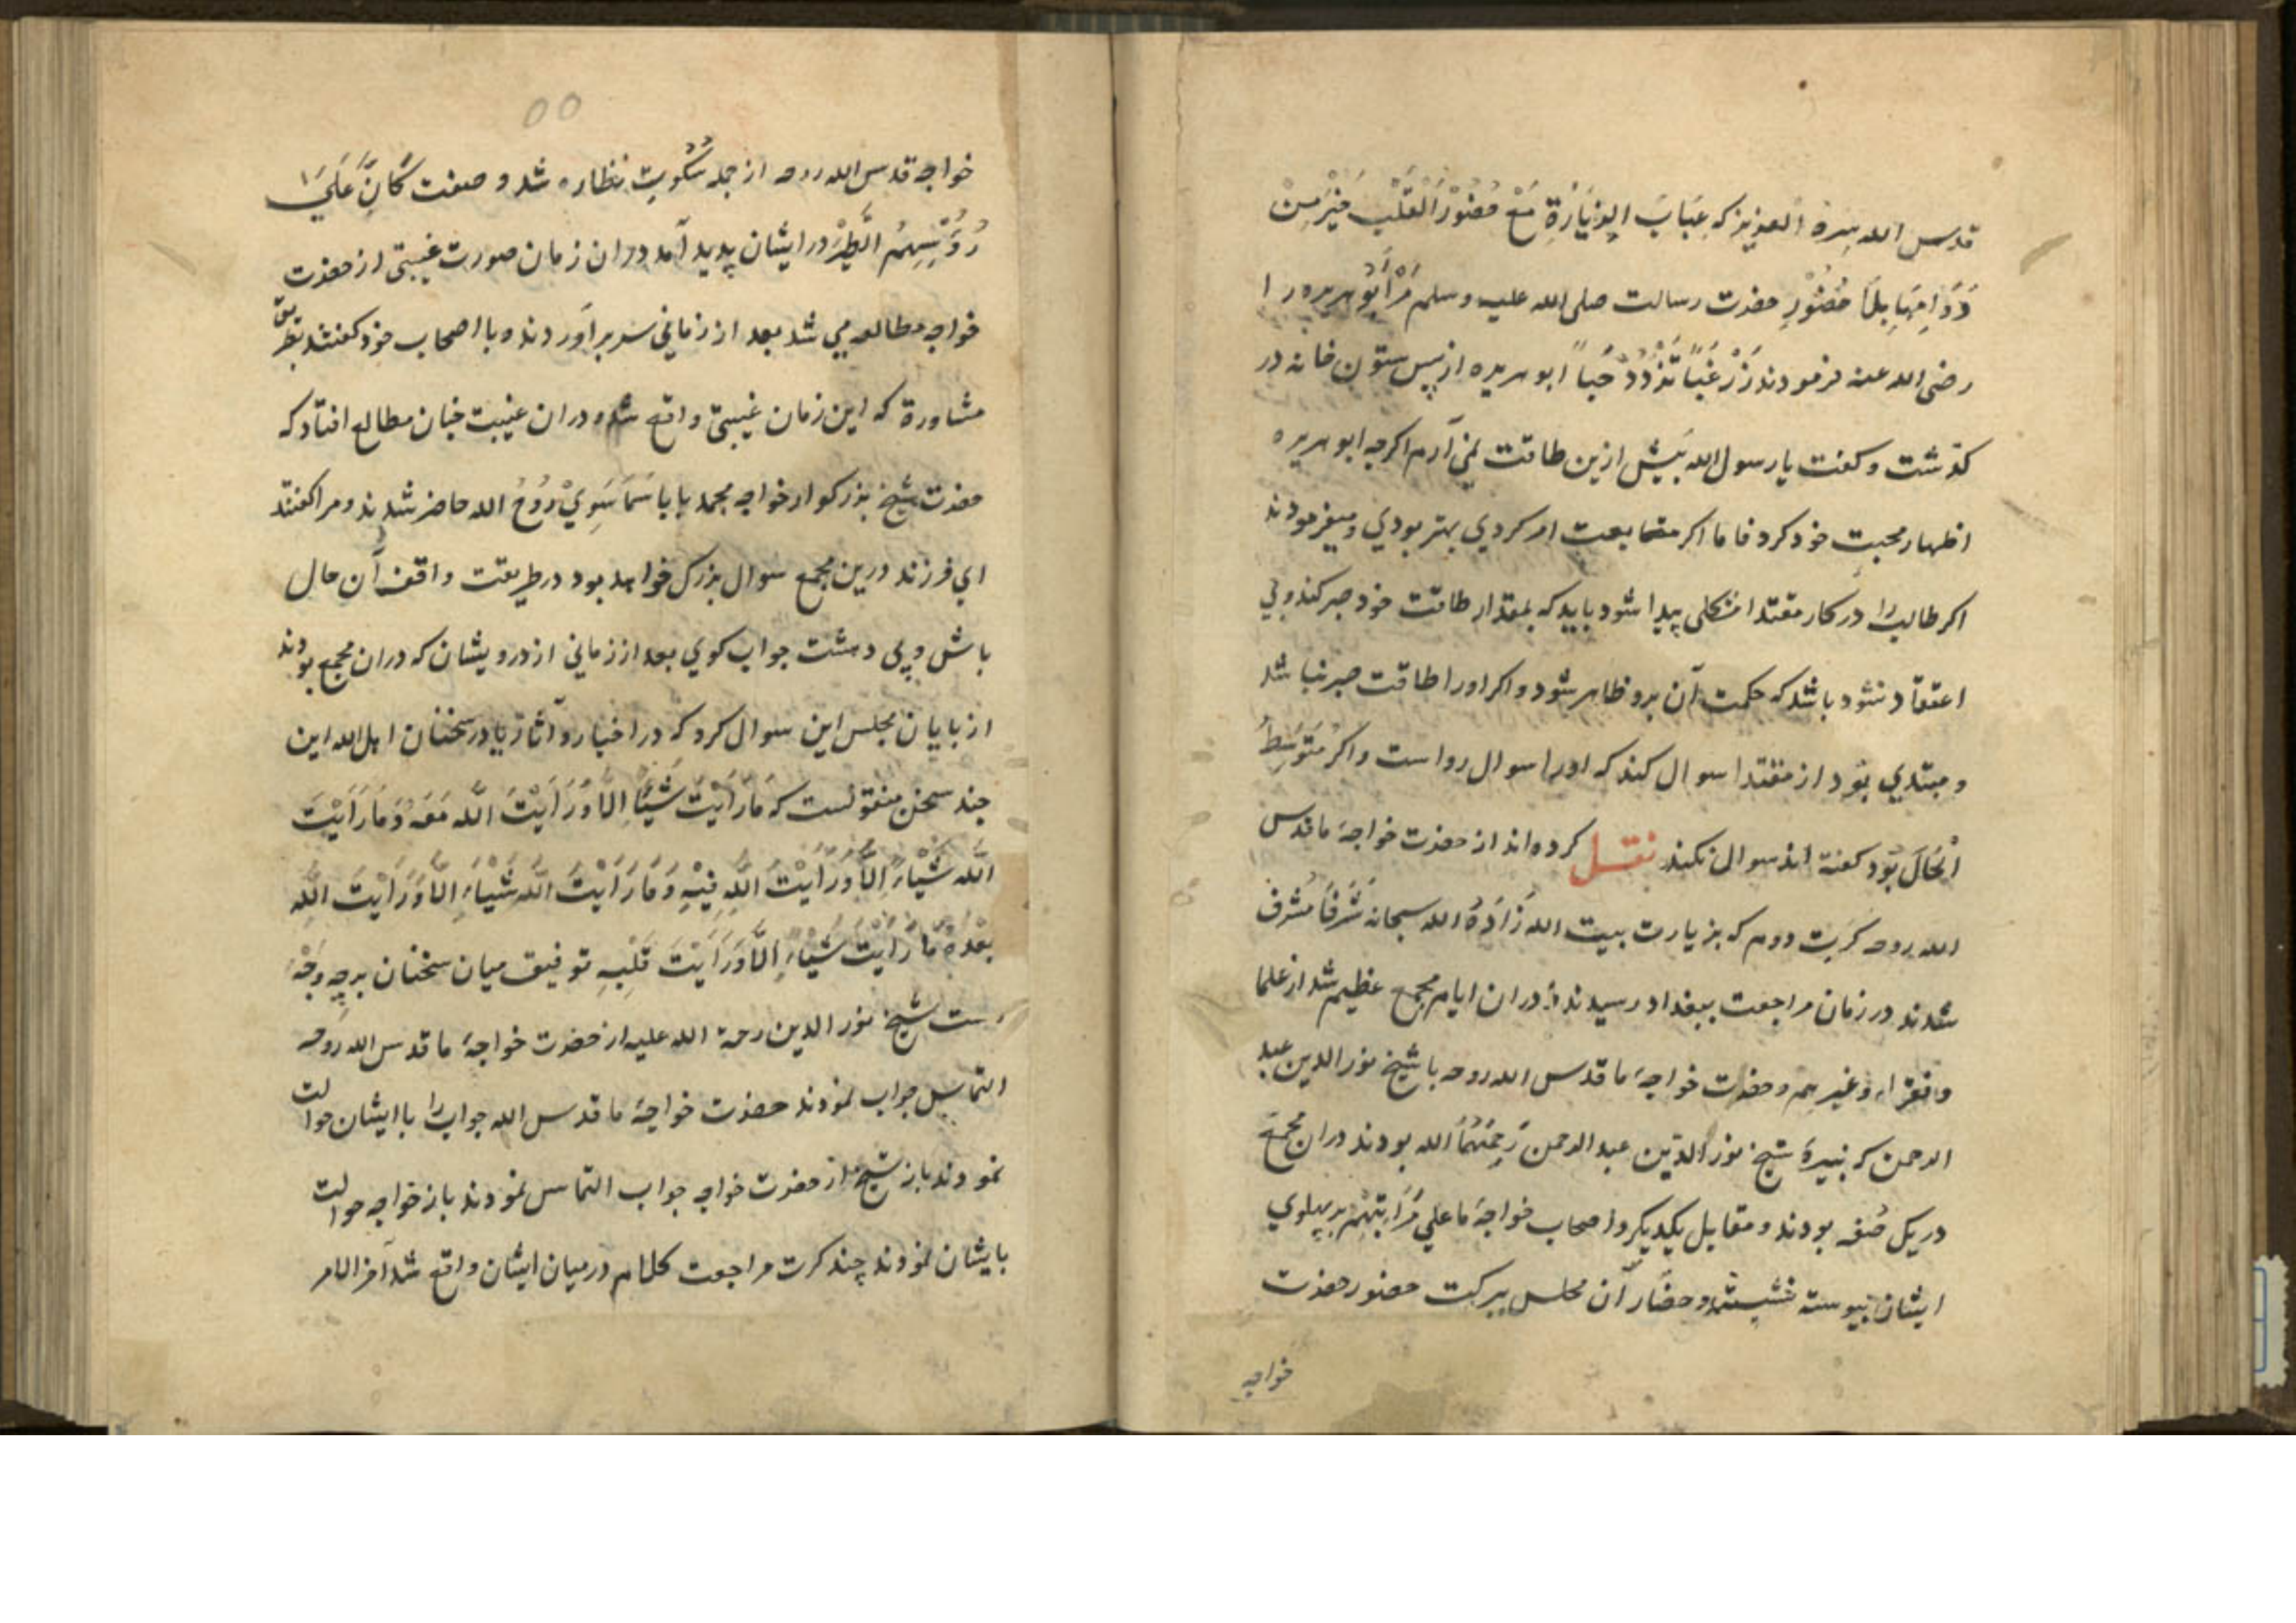 قدس الله سره العزیز که غِبَابَ الزِیَارَةِ مَعَ حُضُوْرِ الْقَلْبِ خَیْرٌ مِنْ
دَوَامِهَا بِلَا حُضُوْرٍ حضرت رسالت صلی الله علیه وسلم مَرْ أَبُو هریره را
رضی الله عنه فرمودند زُرْ غِبًّا تَزْدَدْ حُبًّا ابو هریره از پس ستون خانه در
کذشت و کفت یا رسول الله بیش ازین طاقت نمی آرم اکرچه ابو هریره
اظهار محبت خود کرد فاما اکر متابعت امر کردی بهتر بودی و میفرمودند
اکر طالب را در کار مقتدا مشکلی پیدا شود باید که بمقدار طاقت خود صبر کند و بی
اعتقاد نشود باشد که حکمت آن برو ظاهر شود و اکر او را طاقت صبر نباشد
و مبتدی بود از مقتدا سوال کند که او را سوال رواست و اکر مُتَوَسِّطُ
الْحَالَ بُوَد کفته اند سوال نکند نقل کرده اند از حضرت خواجهٔ ما قدس
الله روحه کرت دوم که بزیارت بیت الله زَادَهُ الله سبحانه شَرَفًا مُشرف
شدند در زمان مراجعت ببغداد رسیدند در ان ایام مجمع عظیم شد از علما
و فقراء و غیرهم و حضرت خواجهٔ ما قدس الله روحه با شیخ نور الدین عبد
الرحمن که نبیرهٔ شیخ نور الدین عبد الرحمن رَحِمَهُمَا الله بودند دران مجمع
در یک صُفه بودند و مقابل یکدیکر و اصحاب خواجهٔ ما علی مَرَاتِبِهِمْ بر پهلوی
ایشان پیوسته نشسته و حضّار آن مجلس ببرکت حضور حضرت
خواجه
٥٥
خواجه قدس الله روحه از جمله سُکُوت نظاره شد و صفت کَأَنَّ عَلَی
رُؤُسِهِمُ الطَیْرَ در ایشان پدید آمد دران زمان صورت غیبتی از حضرت
خواجه مطالعه می شد بعد از زمانی سر بر آوردند و با اصحاب خود کفتند بطریق
مشاورة که این زمان غیبتی واقع شد و دران غیبت چنان مطالع افتاد که
حضرت شیخ بزرکوار خواجه محمد بابا سَمَاسَوِیْ رُوحُ الله حاضر شدند و مرا کفتند
ای فرزند درین مجمع سوال بزرک خواهد بود در طریقت واقف آن حال
باش و بی دهشت جواب کوی بعد از زمانی از درویشان که دران مجمع بودند
از پایان مجلس این سوال کرد که در اخبار و آثار یا در سخنان اهل الله این
چند سخن منقولست که مَا رَاَیْتَ شَیْئًا اِلَّا وَرَاَیْتَ اللّٰه مَعَهُ وَمَا رَاَیْتَ
اللّٰه شَیْاءً اِلَّا وَرَاَیْتَ اللّٰهِ فِیْهِ وَمَا رَاَیْتَ اللّٰه شَیْاءً اِلَّا وَرَاَیْتَ اللّٰهِ
بَعْدَهُ مَا رَاَیْتَ شَیْاءً اِلَّا وَرَاَیْتَ قَلْبِهِ توفیق میان سخنان برچه وجه
ست شیخ نور الدین رحمة الله علیه از حضرت خواجهٔ ما قدس الله روحه
التماس جواب نمودند حضرت خواجهٔ ما قدس الله جواب را با ایشان حوالت
نمودند باز شیخ از حضرت خواجه جواب التماس نمودند باز خواجه حوالت
بایشان نمودند چند کرت مراجعت کلام در میان ایشان واقع شد آخر الامر